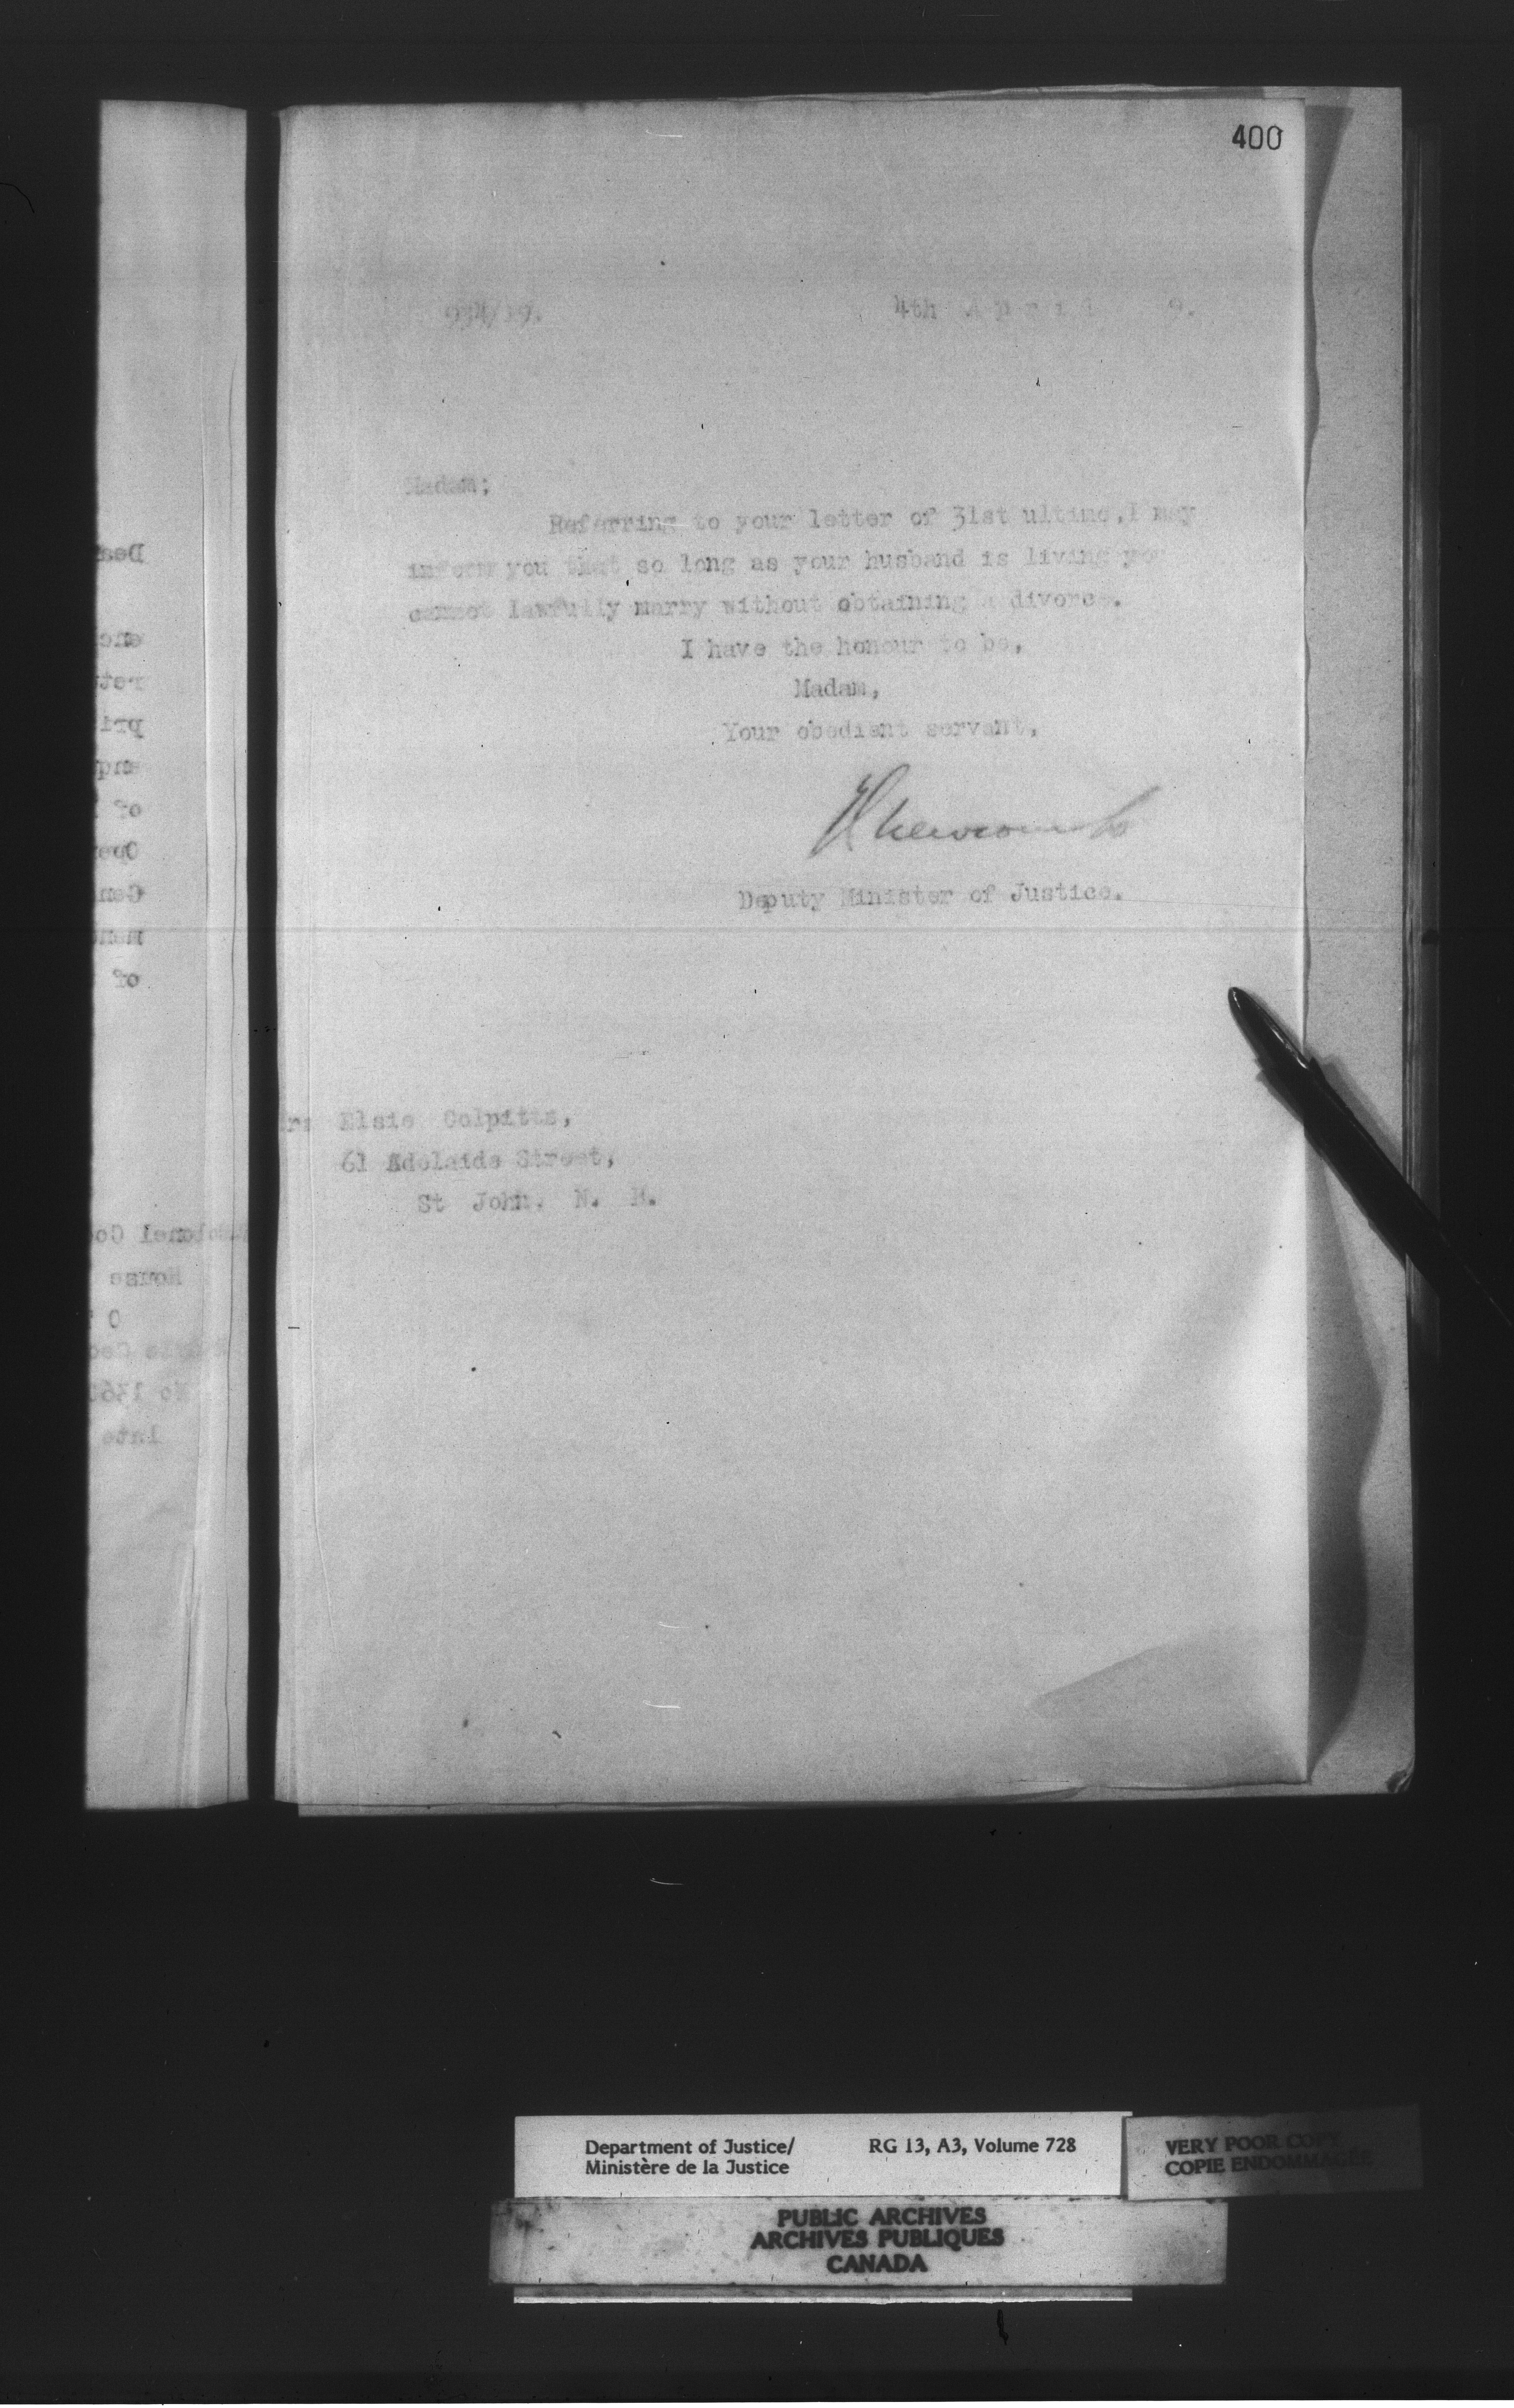 400
934/19.
4th April 9.
Madam;
Referring to your letter of 31st ultimo, I may
inform you that so long as your husband is living you
cannot lawfully marry without obtaining a divorce.
I have the honour to be,
Madam,
Your obedient servant,
Newcombe
Deputy Minister of Justice.
Mrs Elsie Colpitts,
61 Adelaide Street,
St John, N. B.
Department of Justice/
Ministère de la Justice
RG 13, A3, Volume 728
VERY POOR COPY
COPIE ENDOMMAGÉE
PUBLIC ARCHIVES
ARCHIVES PUBLIQUES
CANADA